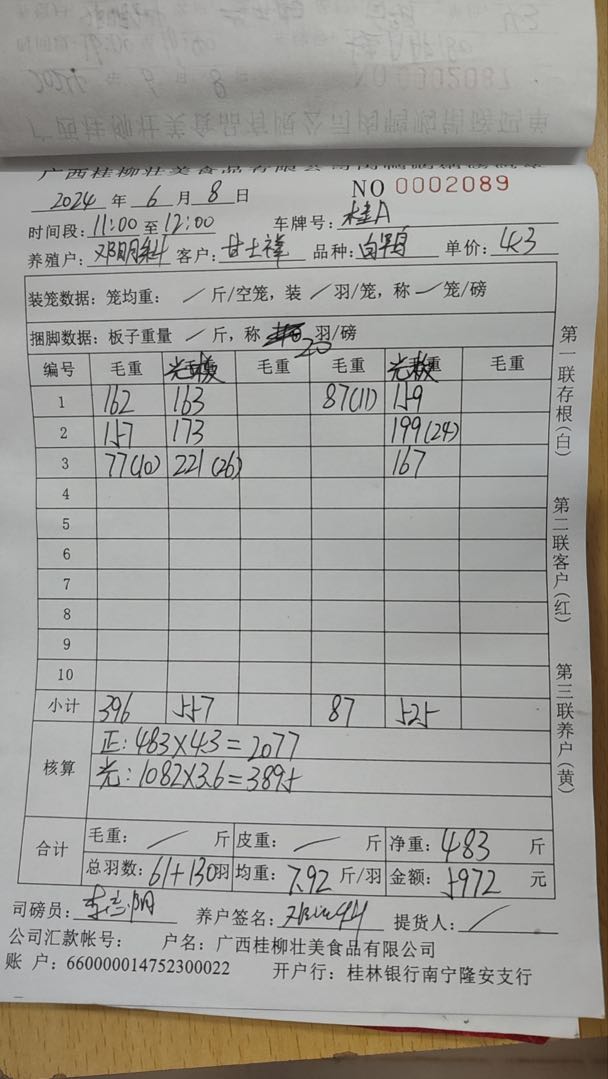 广西桂柳壮美食品有限公司肉鸭购销磅码单
2024年6月8日
NO 0002087
2024 年 6 月 8 日 NO 0002089
时间段: 11:00 至 12:00 车牌号: 桂A
养殖户: 邓明科 客户: 甘士祥 品种: 白羽鸭 单价: 4.3
装笼数据: 笼均重: / 斤/空笼, 装 / 羽/笼, 称 / 笼/磅
捆脚数据: 板子重量 / 斤, 称 20 羽/磅
编号 毛重 毛重 毛重
1 162 163 87(11) 159
2 157 173 199(24)
3 77(10) 221(26) 167
4
5
6
7
8
9
10
小计 396 557 87 525
核算 正: 483×4.3=2077
光: 1082×3.6=3895
合计 毛重: / 斤 皮重: / 斤 净重: 483 斤
总羽数: 61+130羽 均重: 7.92 斤/羽 金额: 5972 元
司磅员: 养户签名: 提货人: /
公司汇款帐号: 户名: 广西桂柳壮美食品有限公司
账 户: 660000014752300022 开户行: 桂林银行南宁隆安支行
第一联存根(白)
第二联客户(红)
第三联养户(黄)